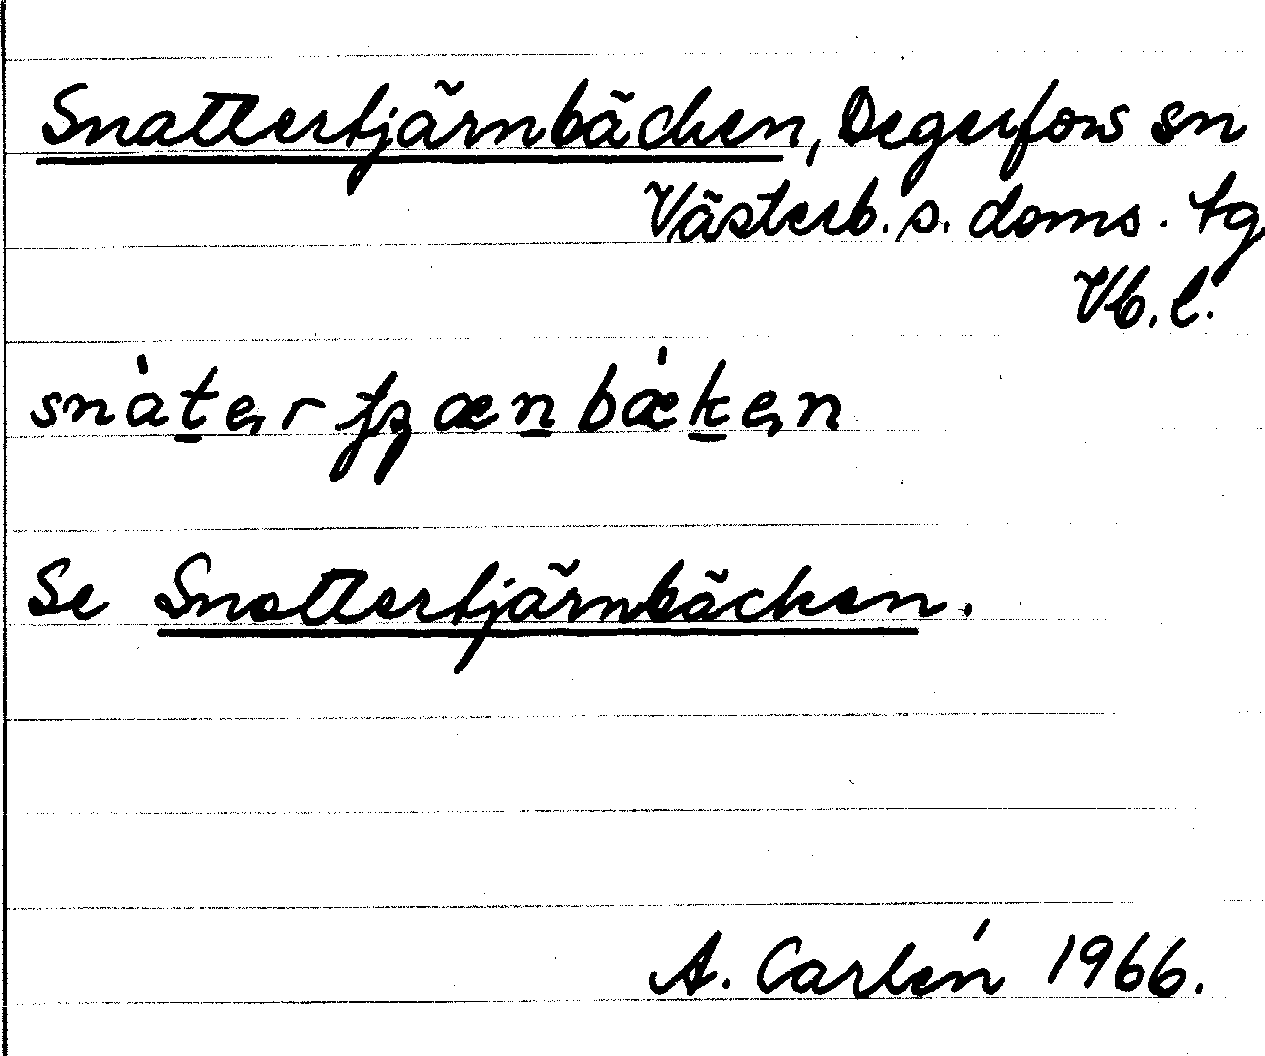 Snattertjärnbäcken, Degerfors sn
Västerb. s. doms. tg
Vb. l.
Se Snattertjärnbäcken.
A. Carlén 1966.